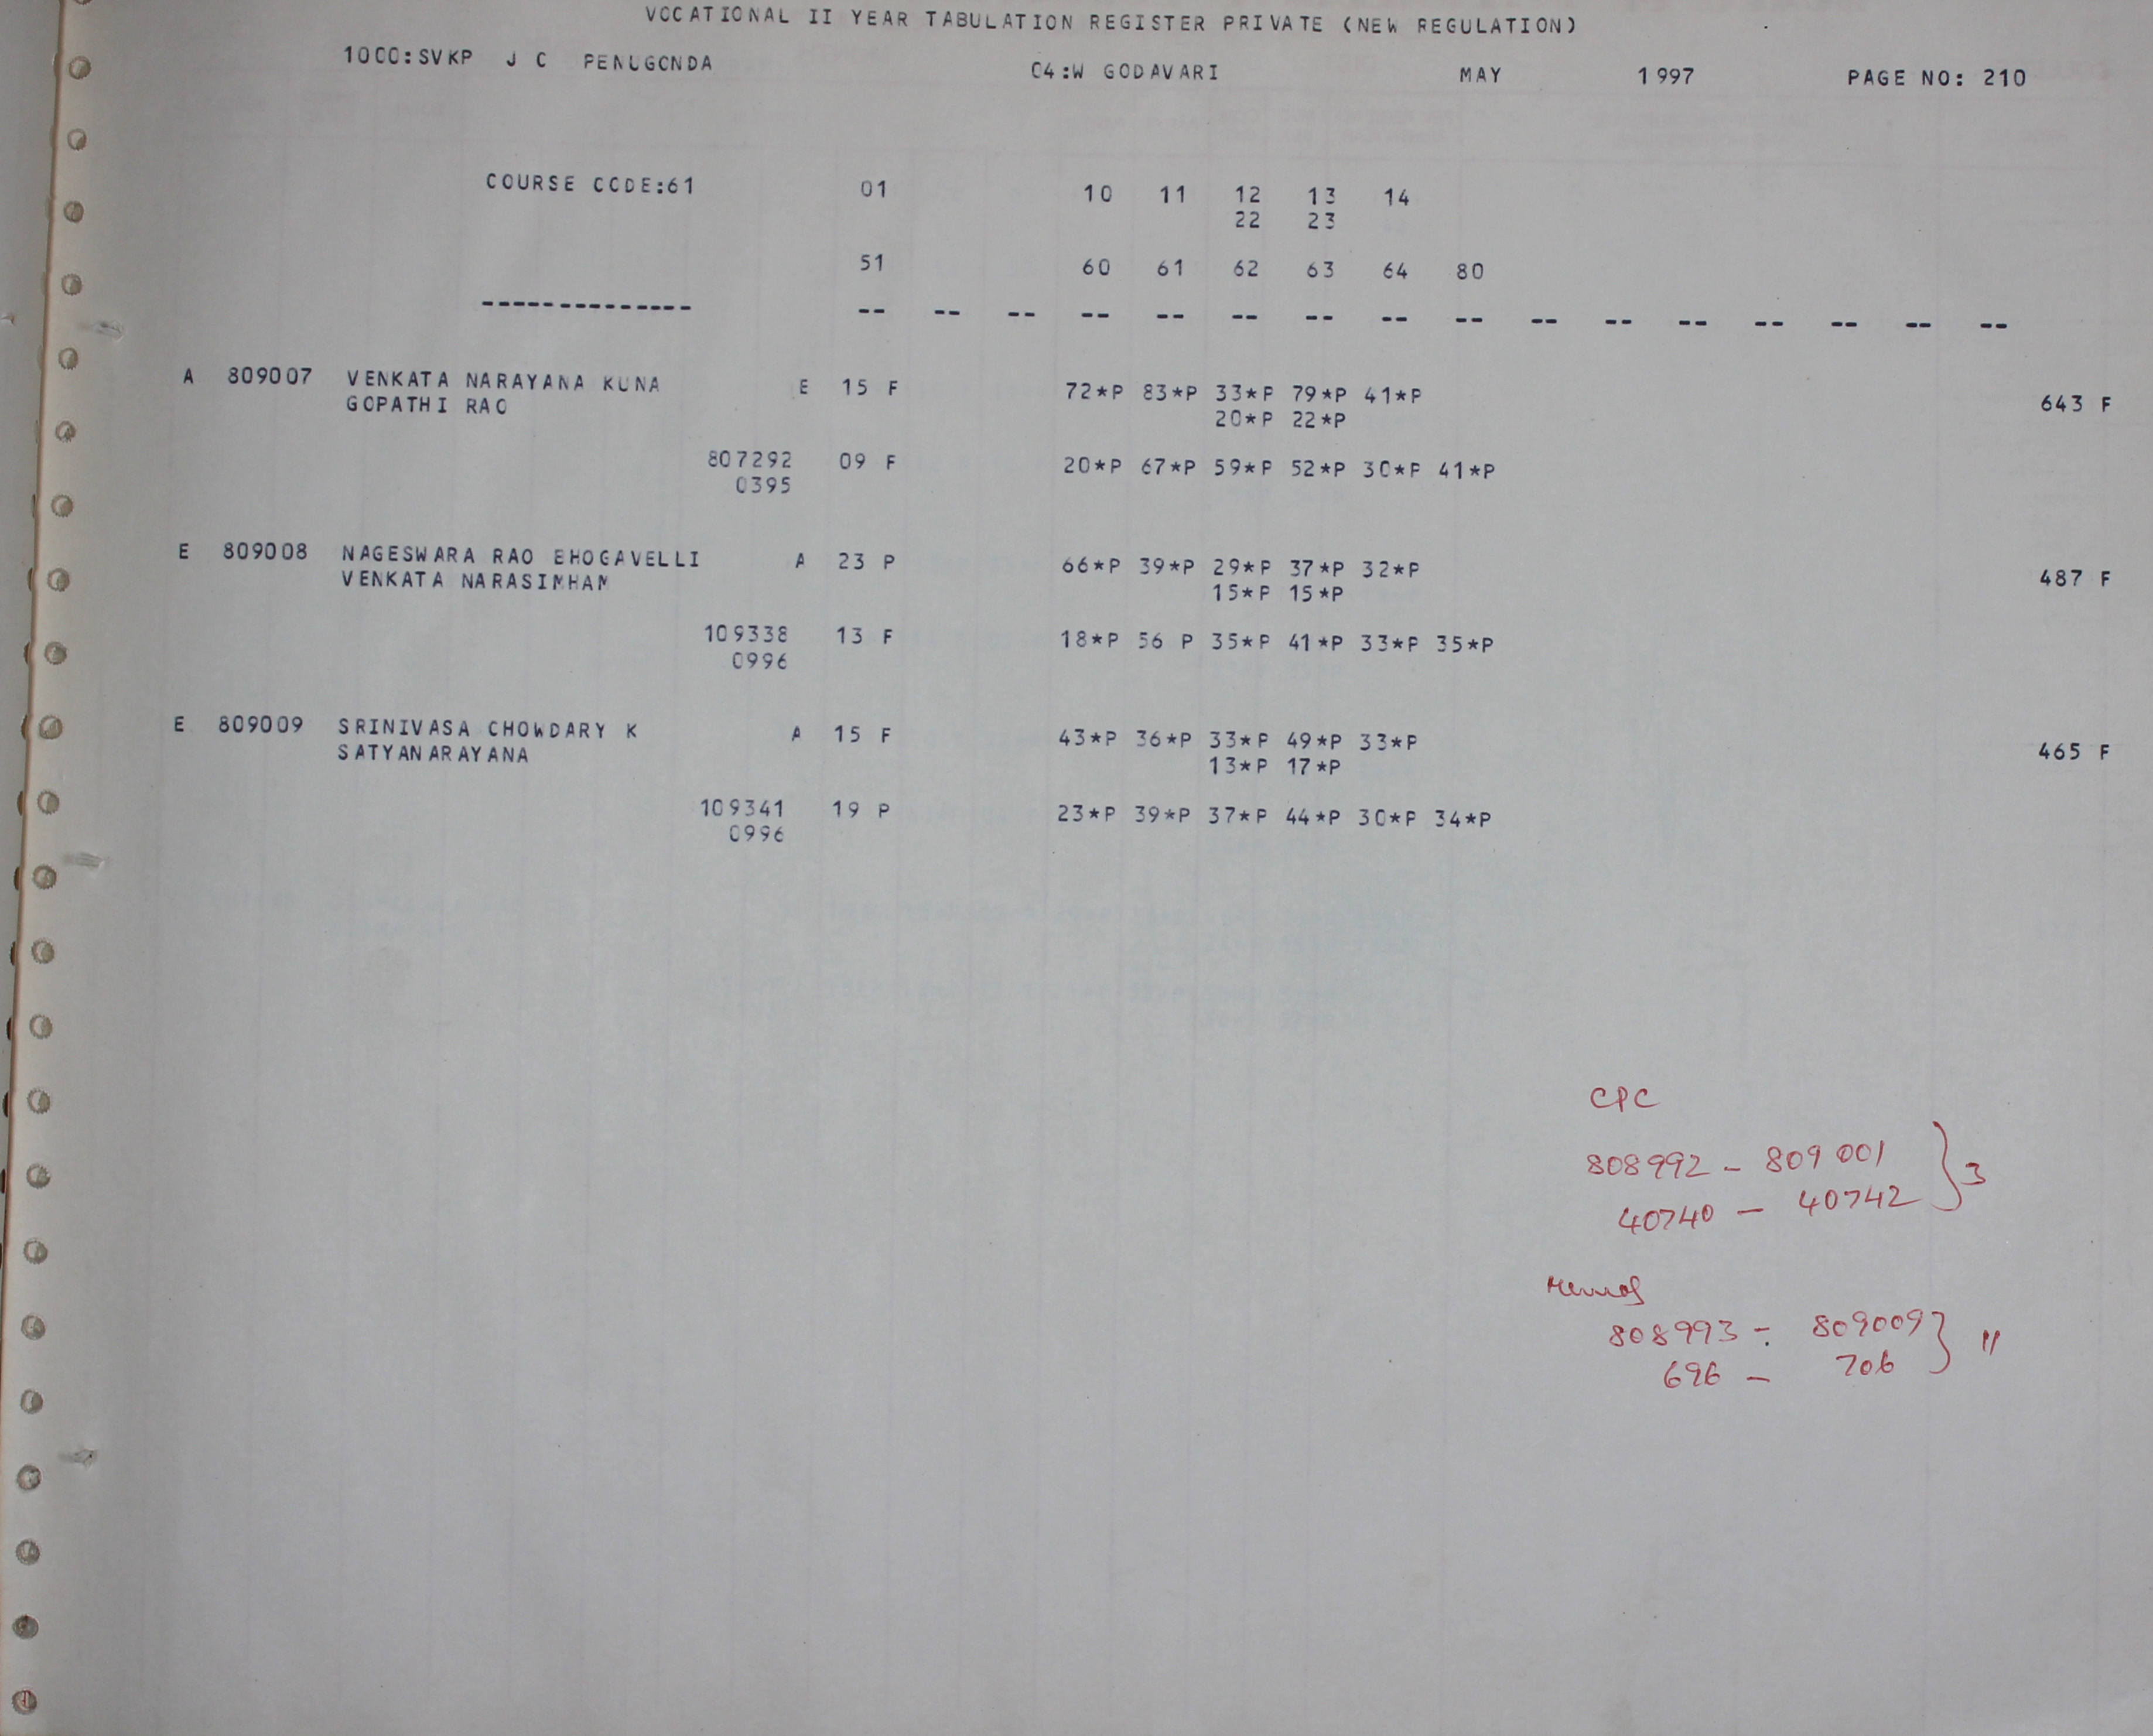 VOCATIONAL II YEAR TABULATION REGISTER PRIVATE (NEW REGULATION)
1000:SVKP J C PENUGONDA 04:W GODAVARI MAY 1997 PAGE NO: 210
COURSE CODE:61 01 10 11 12 13 14
22 23
51 60 61 62 63 64 80
-------------- -- -- -- -- -- -- -- -- -- -- -- -- -- -- -- --
A 809007 VENKATA NARAYANA KUNA E 15 F 72*P 83*P 33*P 79*P 41*P 643 F
GOPATHI RAO 20*P 22*P
807292 09 F 20*P 67*P 59*P 52*P 30*P 41*P
0395
E 809008 NAGESWARA RAO BHOGAVELLI A 23 P 66*P 39*P 29*P 37*P 32*P 487 F
VENKATA NARASIMHAM 15*P 15*P
109338 13 F 18*P 56 P 35*P 41*P 33*P 35*P
0996
E 809009 SRINIVASA CHOWDARY K A 15 F 43*P 36*P 33*P 49*P 33*P 465 F
SATYANARAYANA 13*P 17*P
109341 19 P 23*P 39*P 37*P 44*P 30*P 34*P
0996
CPC
808992 - 809001 } 3
40740 - 40742
Memos
808993 - 809009 } 11
696 - 706